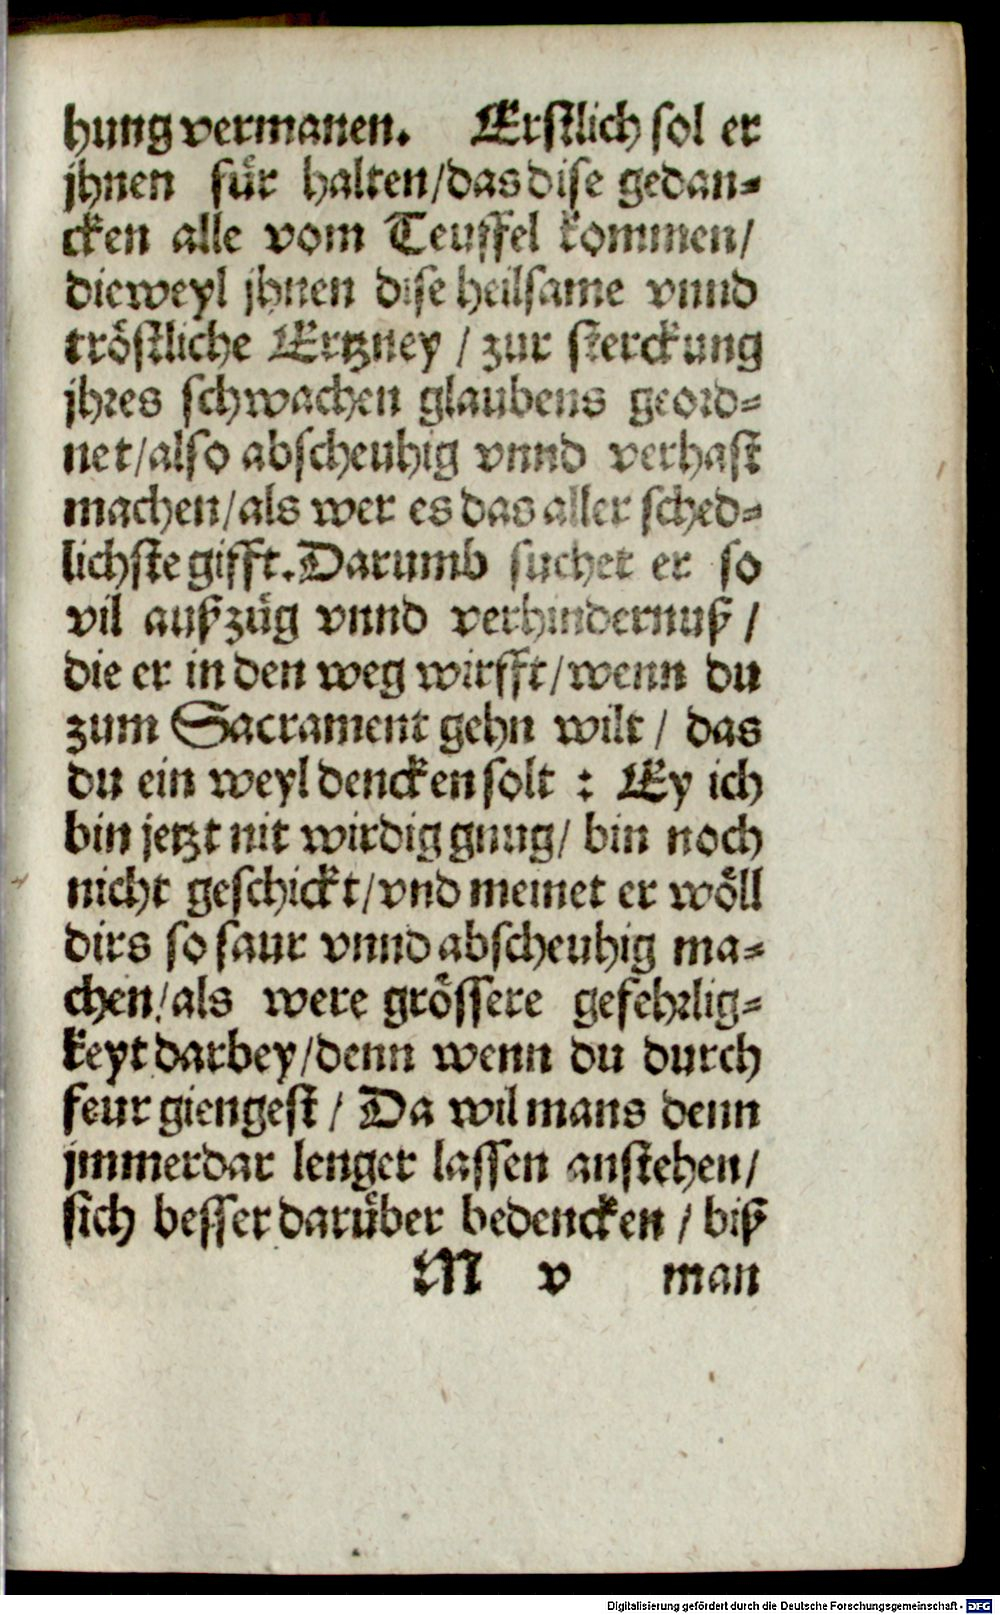 hung vermanen. Erstlich sol er
jhnen für halten/das dise gedan-
cken alle vom Teuffel kommen/
dieweyl jhnen dise heilsame vnnd
tröstliche Ertzney / zur sterckung
jhres schwachen glaubens geord-
net/also abscheuhig vnnd verhast
machen/als wer es das aller sched-
lichste gifft. Darumb suchet er so
vil außzüg vnnd verhindernuß /
die er in den weg wirfft/wenn du
zum Sacrament gehn wilt / das
du ein weyl dencken solt : Ey ich
bin jetzt nit wirdig gnug/ bin noch
nicht geschickt/vnd meinet er wöll
dirs so saur vnnd abscheuhig ma-
chen/als were grössere gefehrlig-
keyt darbey/denn wenn du durch
feur giengest / Da wil mans denn
jmmerdar lenger lassen anstehen/
sich besser darüber bedencken / biß
M v man
Digitalisierung gefördert durch die Deutsche Forschungsgemeinschaft - DFG